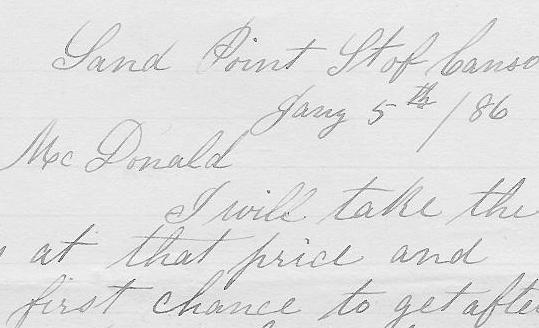 Sand Point St of Canso
Jany 5th /86
McDonald
I will take the
at that price and
first chance to get after